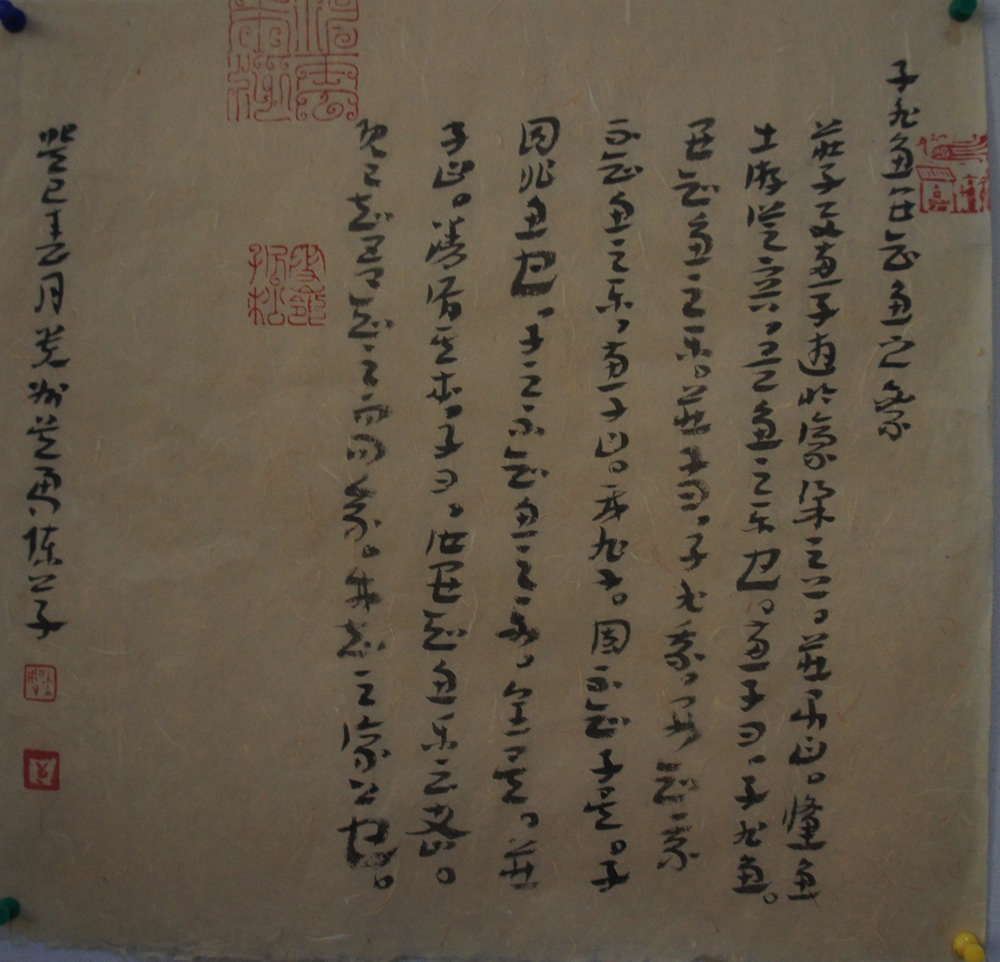 子非魚安知魚之樂
莊子與惠子遊於濠梁之上。莊子曰。儵魚
出游從容，是魚之樂也。惠子曰，子非魚。
安知魚之樂。莊子曰，子非我，安知我
不知魚之樂，惠子曰。我非子。固不知子矣。子
固非魚也，子之不知魚之樂。全矣。莊
子曰。請循其本。子曰，汝安知魚樂云者。
既已知吾知之而問我。我知之濠上也。
癸巳春月